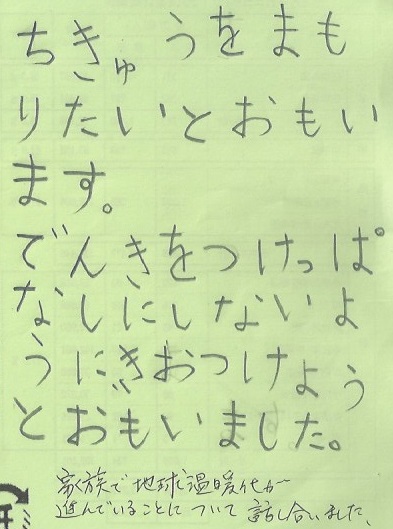 ちきゅうをまも
りたいとおもい
ます。
でんきをつけっぱ
なしにしないよ
うにきおつけよう
とおもいました。
家族で地球温暖化が
進んでいることについて話し合いました。